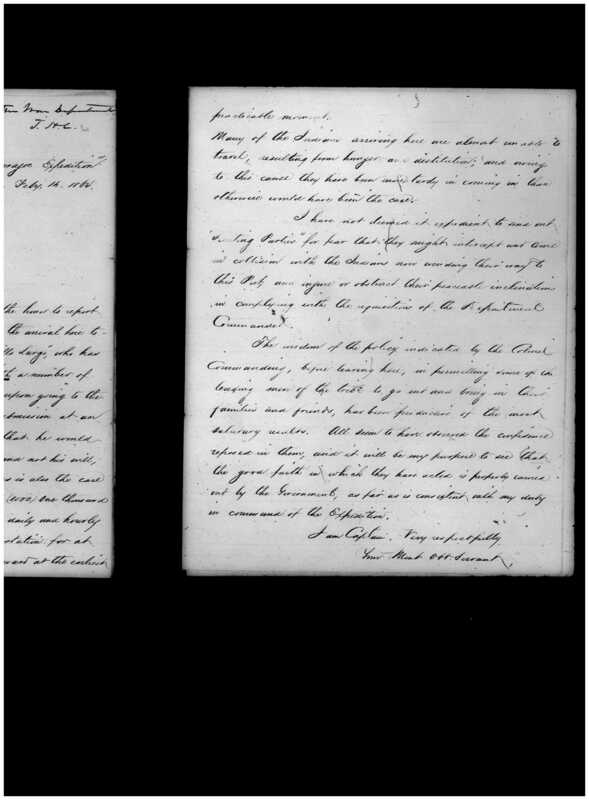 J. H. C.
Expedition
Feby. 14. 1864.
the honor to report
the arrival here to-
who has
a number of
upon going to the
submission at an
that he would
and not his will,
is also the case
(1000) One thousand
daily and hourly
for at
at the earliest
practicable moment.
Many of the Indians arriving here are almost unable to
travel, resulting from hunger and destitution; and owing
to this cause they have been more tardy in coming in than
otherwise would have been the case.
I have not deemed it expedient to send out
"Scouting Parties" for fear that they might intercept and come
in collision with the Indians now wending their way to
this Post, and injure or obstruct their peaceable inclinations
in complying with the requisitions of the Department
Commander.
The wisdom of the policy indicated by the Colonel
Commanding, before leaving here, in permitting some of the
leading men of the tribe to go out and bring in their
families and friends, has been productive of the most
salutary results. All seem to have observed the confidence
reposed in them, and it will be my purpose to see that
the good faith in which they have acted is properly carried
out by the Government, as far as is consistent with my duty
in command of the Expedition.
I am Captain, Very respectfully
Your Most Obt. Servant,